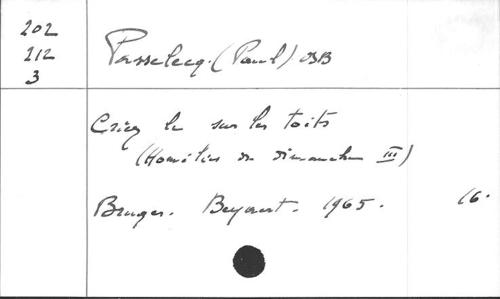 202
212
3
Passelecq. (Paul) OSB
Criez le sur les toits
(Homélies du dimanche III)
Bruges. Beyaert. 1965. 16.